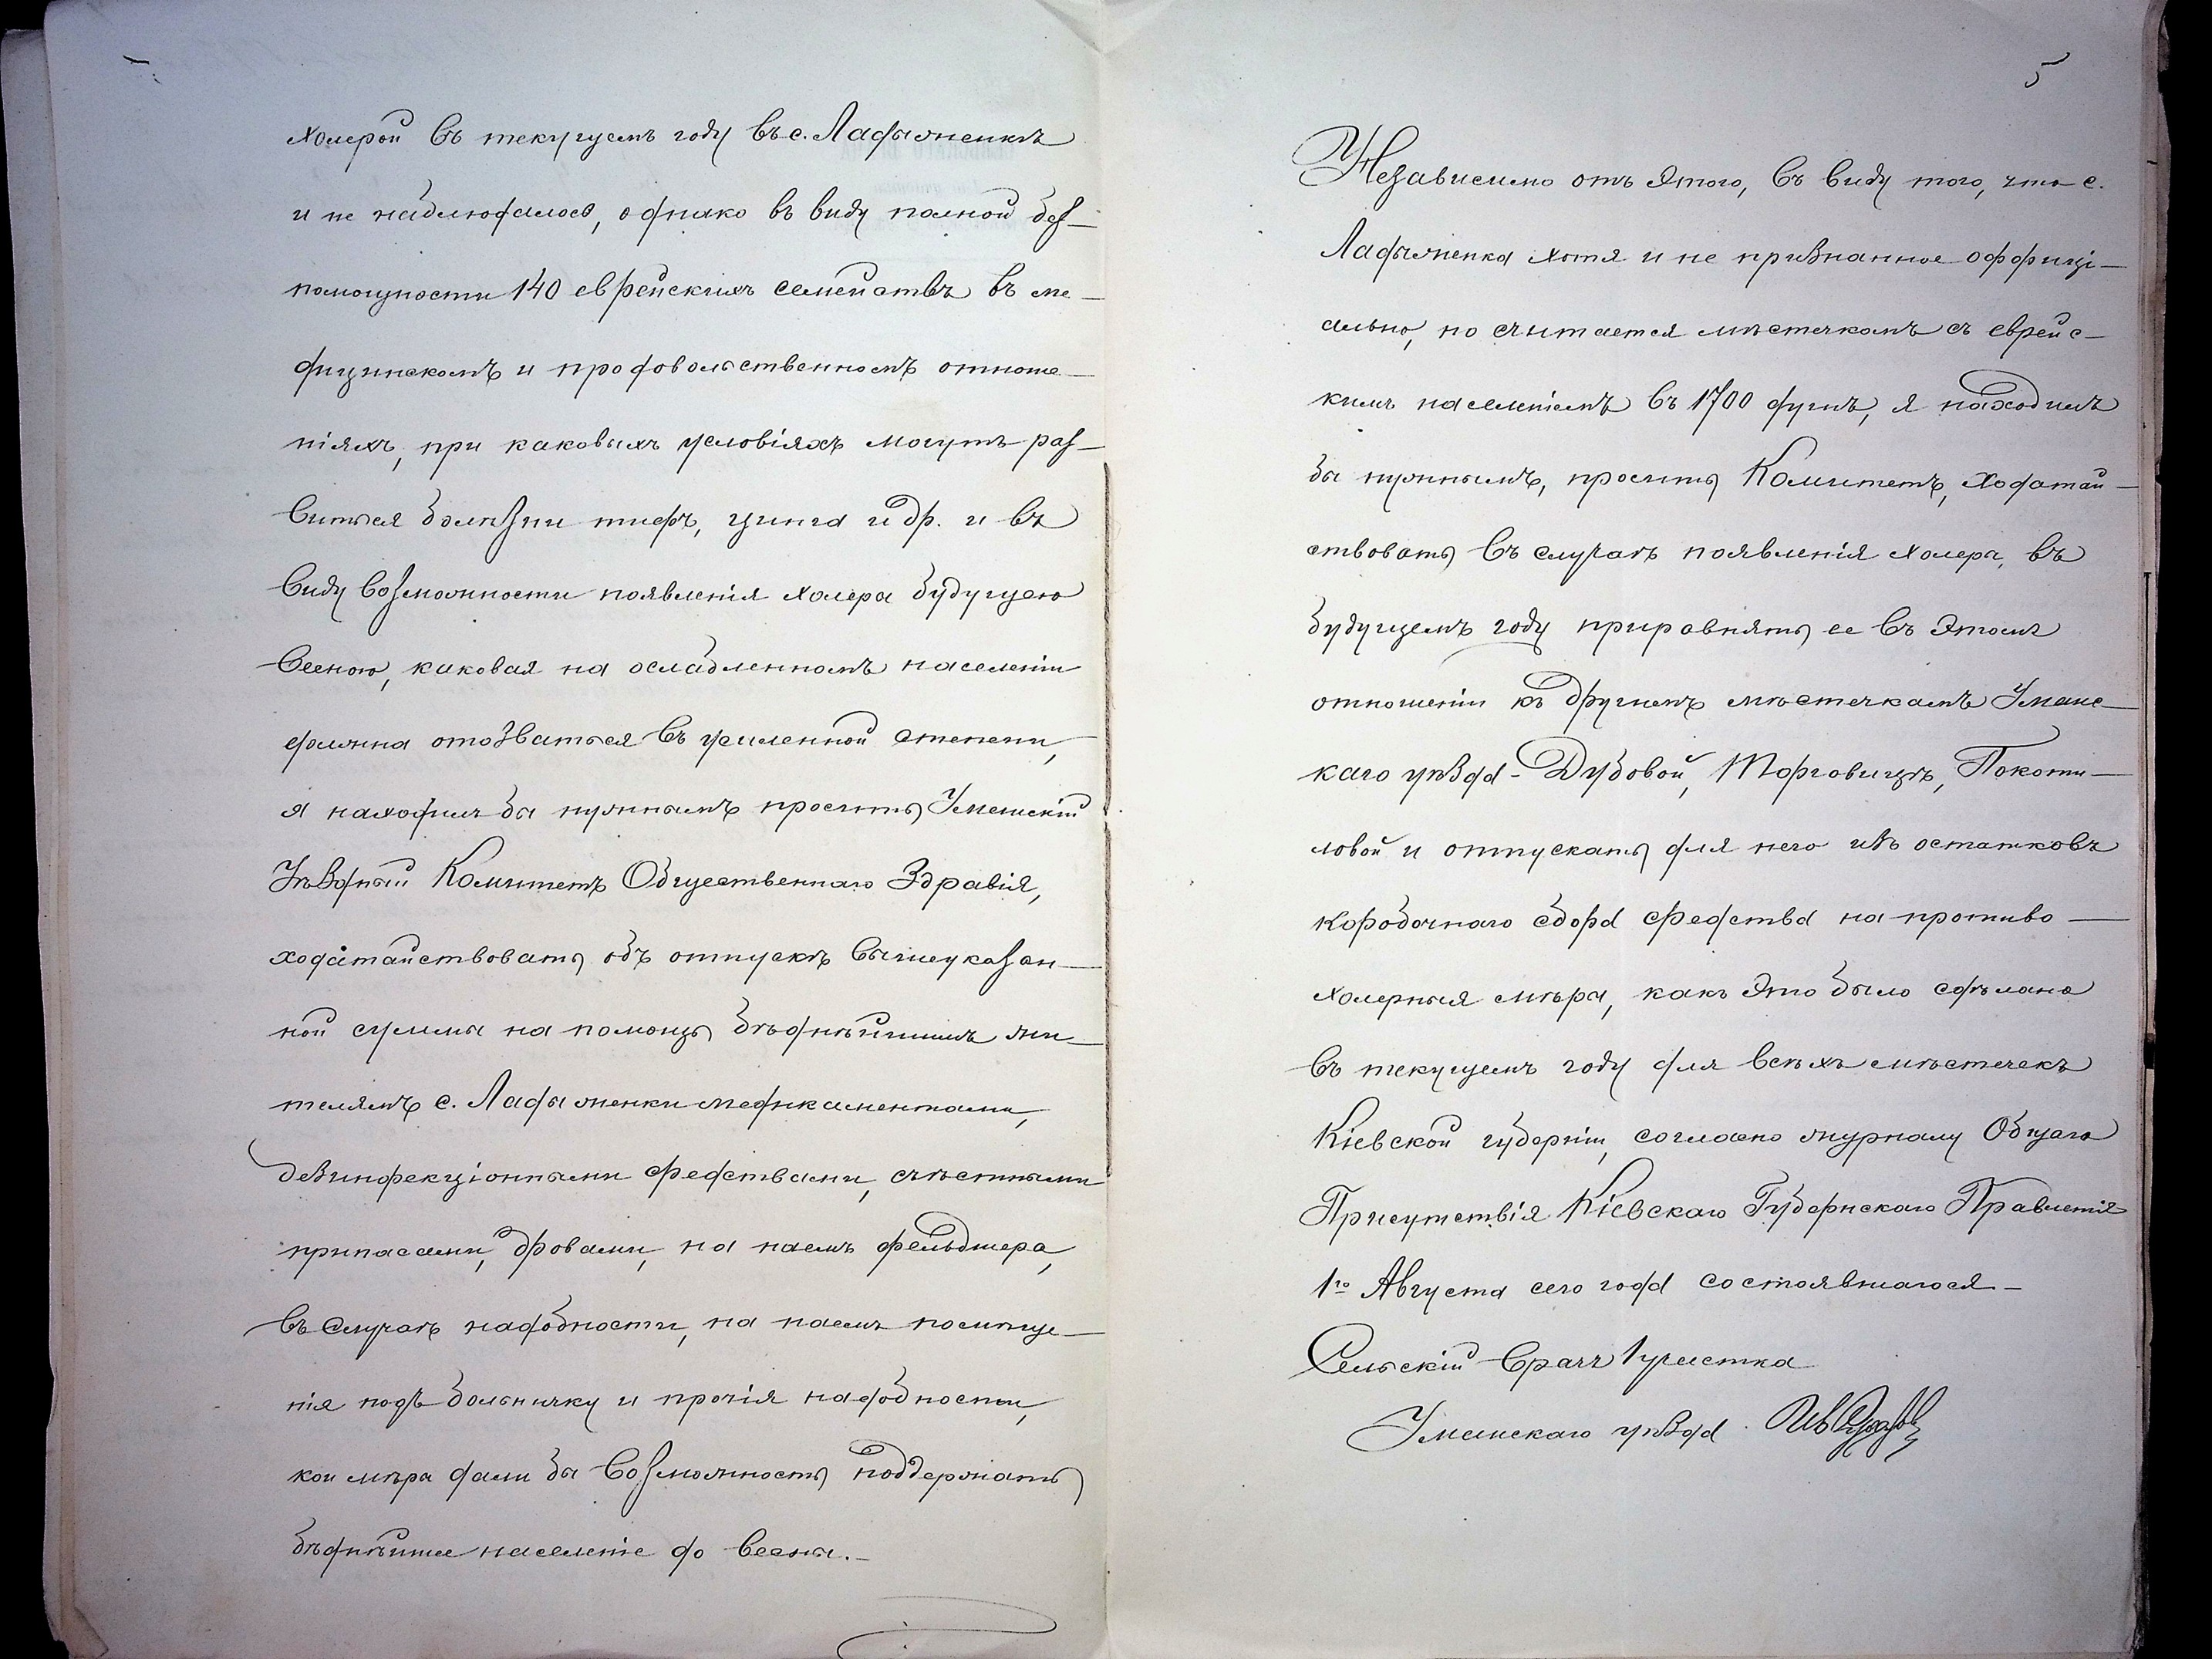 холерой въ текущемъ году въ с. Ладыженкѣ
и не наблюдалось, однако въ виду полной без-
помощности 140 еврейскихъ семействъ въ ме-
дицинскомъ и продовольственномъ отноше-
ніяхъ, при каковыхъ условіяхъ могутъ раз-
виться болѣзни тифъ, цинга и др. и въ
виду возможности появленія холеры будущею
весною, каковая на ослабленномъ населеніи
должна отозваться въ усиленной степени,
я находилъ бы нужнымъ просить Уманскій
Уѣздный Комитетъ Общественнаго Здравія,
ходатайствовать объ отпускѣ вышеуказан-
ной суммы на помощь бѣднѣйшимъ жи-
телямъ с. Ладыженки медикаментами,
дезинфекціонными средствами, съѣстными
припасами, дровами, на наемъ фельдшера,
въ случаѣ надобности, на наемъ помѣще-
нія подъ больничку и прочія надобности,
кои мѣры дали бы возможность поддержать
бѣднѣйшее населеніе до весны.-
5
Независимо отъ этого, въ виду того, что с.
Ладыженка хотя и не признанное оффиці-
ально, но считается мѣстечкомъ съ еврейс-
кимъ населеніемъ въ 1700 душъ, я находилъ
бы нужнымъ, просить Комитетъ, ходатай-
ствовать въ случаѣ появленія холеры, въ
будущемъ году приравнять ее въ этомъ
отношеніи къ другимъ мѣстечкамъ Уманс-
каго уѣзда - Дубовой, Торговицѣ, Покоти-
ловой и отпускать для него изъ остатковъ
коробочнаго сбора средства на противо-
холерныя мѣры, какъ это было сдѣлано
въ текущемъ году для всѣхъ мѣстечекъ
Кіевской губерніи, согласно журналу Общаго
Присутствія Кіевскаго Губернскаго Правленія
1го Августа сего года состоявшагося-
Сельскій Врачъ 1 участка
Уманскаго уѣзда